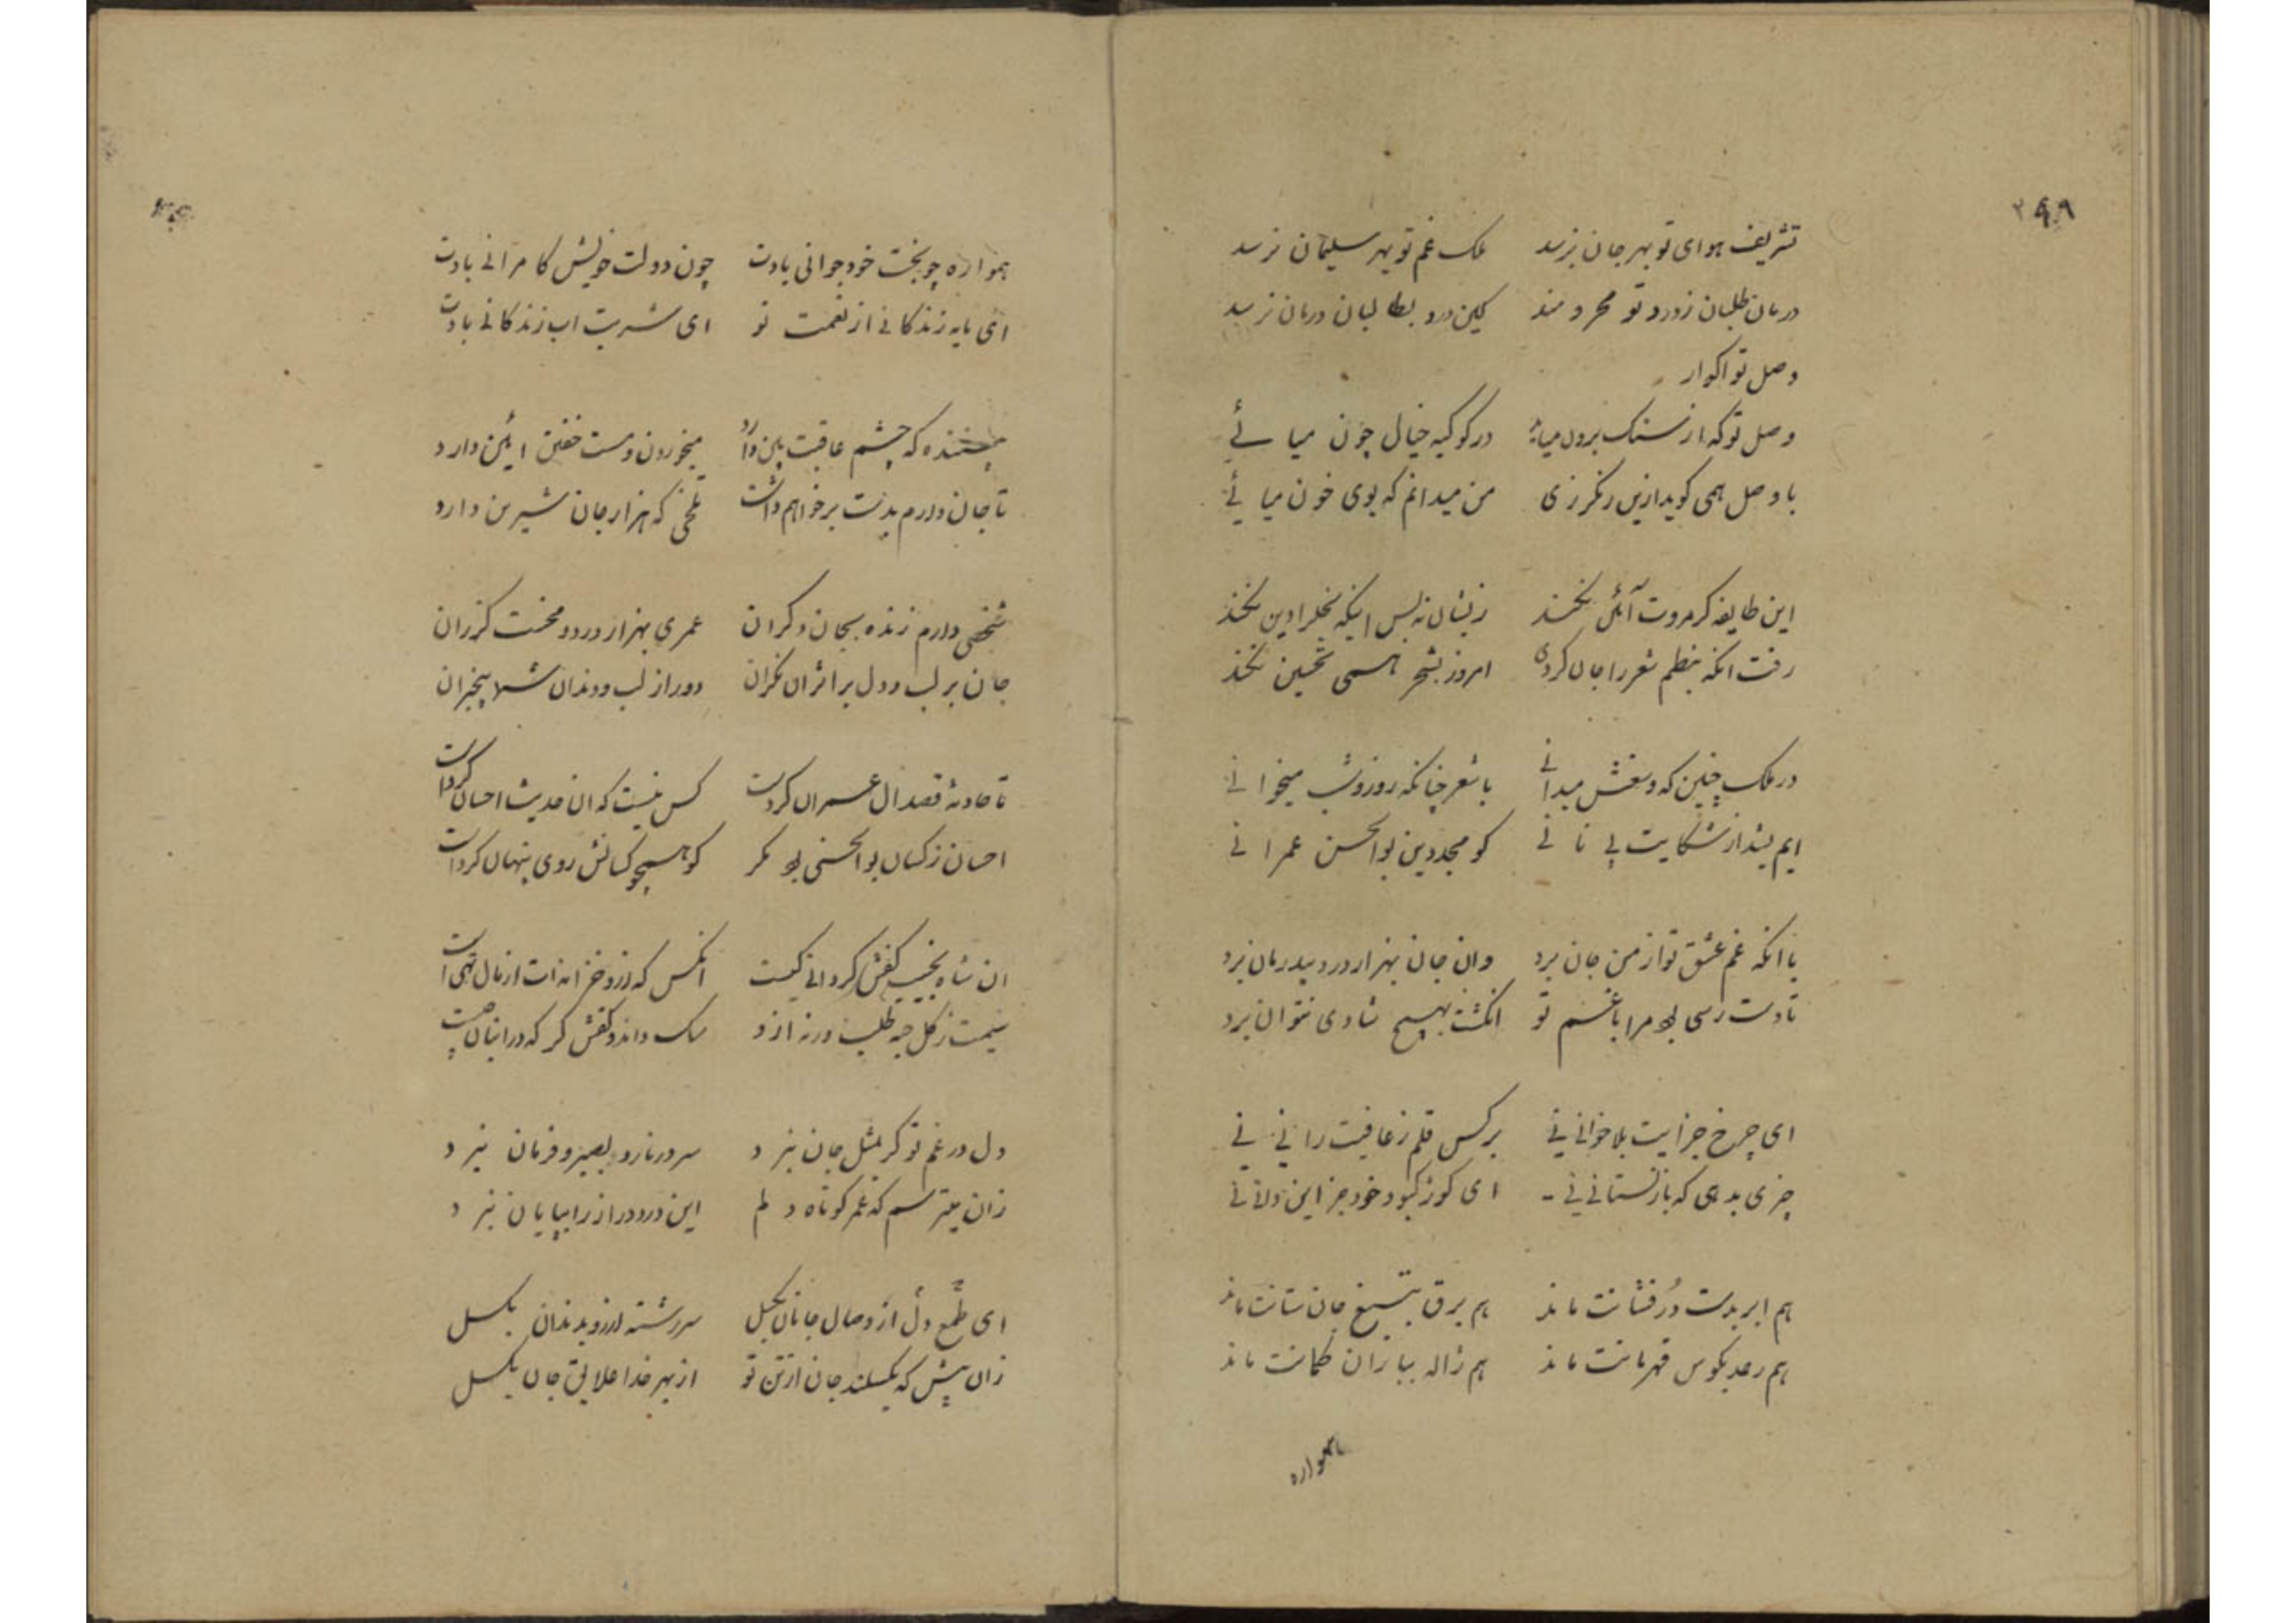 ۲۹۸
تشریف هوای تو بهر جان نرسد ملک غم تو بهر سلیمان نرسد
درمان طلبان ز درد تو محرومند کین درد بطالبان درمان نرسد
وصل تو
وصل تو که از سنک برون میا در کوکبه خیال چون میائے
با وصل همی کوید ازین رنکرزی من میدانم که بوی خون میائے
این طایفه کر مروت آئین نکنند زیشان نه بس اینکه
رفت انکه بنظم شعر را جان کردی امروز بشعر تحسین نکند
در ملک چنین که وسعتش میدانے با شعر چنانکه روز و شب میخوانے
از شکایت بی نانے کو مجددین بوالحسن عمرانے
با انکه غم عشق تو از من جان برد وان جان بهزار درد بیدرمان برد
تا دست رسی بود مرا با غم تو انکشت بهیچ شادی نتوان برد
ای چرخ جز ایت بلا خوانی نی بر کس قلم ز عافیت رانی نی
چیزی بدهی که باز نستانی نی ای کوژ کبود خود جز این دانی نی
هم ابر بدست دُرفشانت ماند هم برق بتیغ جان ستانت ماند
هم رعد بکوس قهرمانت ماند هم ژاله بباران کمانت ماند
همواره
همواره چو بخت خود جوانی بادت چون دولت خویش کامرانے بادت
ای مایه زندکانے از نعمت تو ای شربت اب زندکانے بادت
که چشم عاقبت بین دارد میخوردن و مست خفتن ائین دارد
تا جان دارم بدست برخواهم داشت تلخی که هزار جان شیرین دارد
شخصی دارم زنده بجان دکران عمری بهزار درد و محنت کزران
جان بر لب و دل بر اثر ان نکران دور از لب و دندان شما بیخبران
تا حادثه قصد ال عمران کردست کس نیست که ان حدیث احسان کردست
احسان ز کسان بوالحسن بود مکر کو همچو کسانش روی پنهان کردست
ان شاه بخیست کفش کردانے کیست انکس که ازو خزانه ات از مال تهی است
ز کل جبه طلب ورنه ازو داند و کفش کر که در انبان چیست
دل در غم تو کر بمثل جان نبرد سر در نارد بصبر و فرمان نبرد
زان میترسم که عمر کوتاه دلم این درد دراز را بپایان نبرد
ای طمع دل از وصال جانان بکسل سر رشته ارزو بدندان بکسل
زان پیش که بکسلند جان از تن تو از بهر خدا علایق جان بکسل